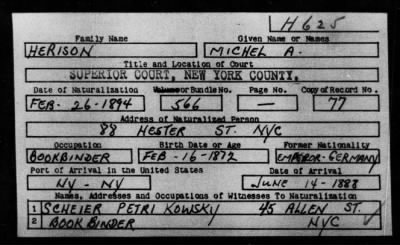 H625
Family Name Given Name or Names
HERISON MICHEL A.
Title and Location of Court
SUPERIOR COURT, NEW YORK COUNTY.
Date of Naturalization Volume or Bundle No. Page No. Copy of Record No.
FEB- 26-1894 566 — 77
Address of Naturalized Person
88 HESTER ST. NYC
Occupation Birth Date or Age Former Nationality
BOOKBINDER FEB -16-1872 EMPEROR-GERMANY
Port of Arrival in the United States Date of Arrival
NY - NY JUNE 14-1888
Names, Addresses and Occupations of Witnesses To Naturalization
1 SCHEIER PETRI KOWSKY 45 ALLEN ST.
2 BOOK BINDER NYC